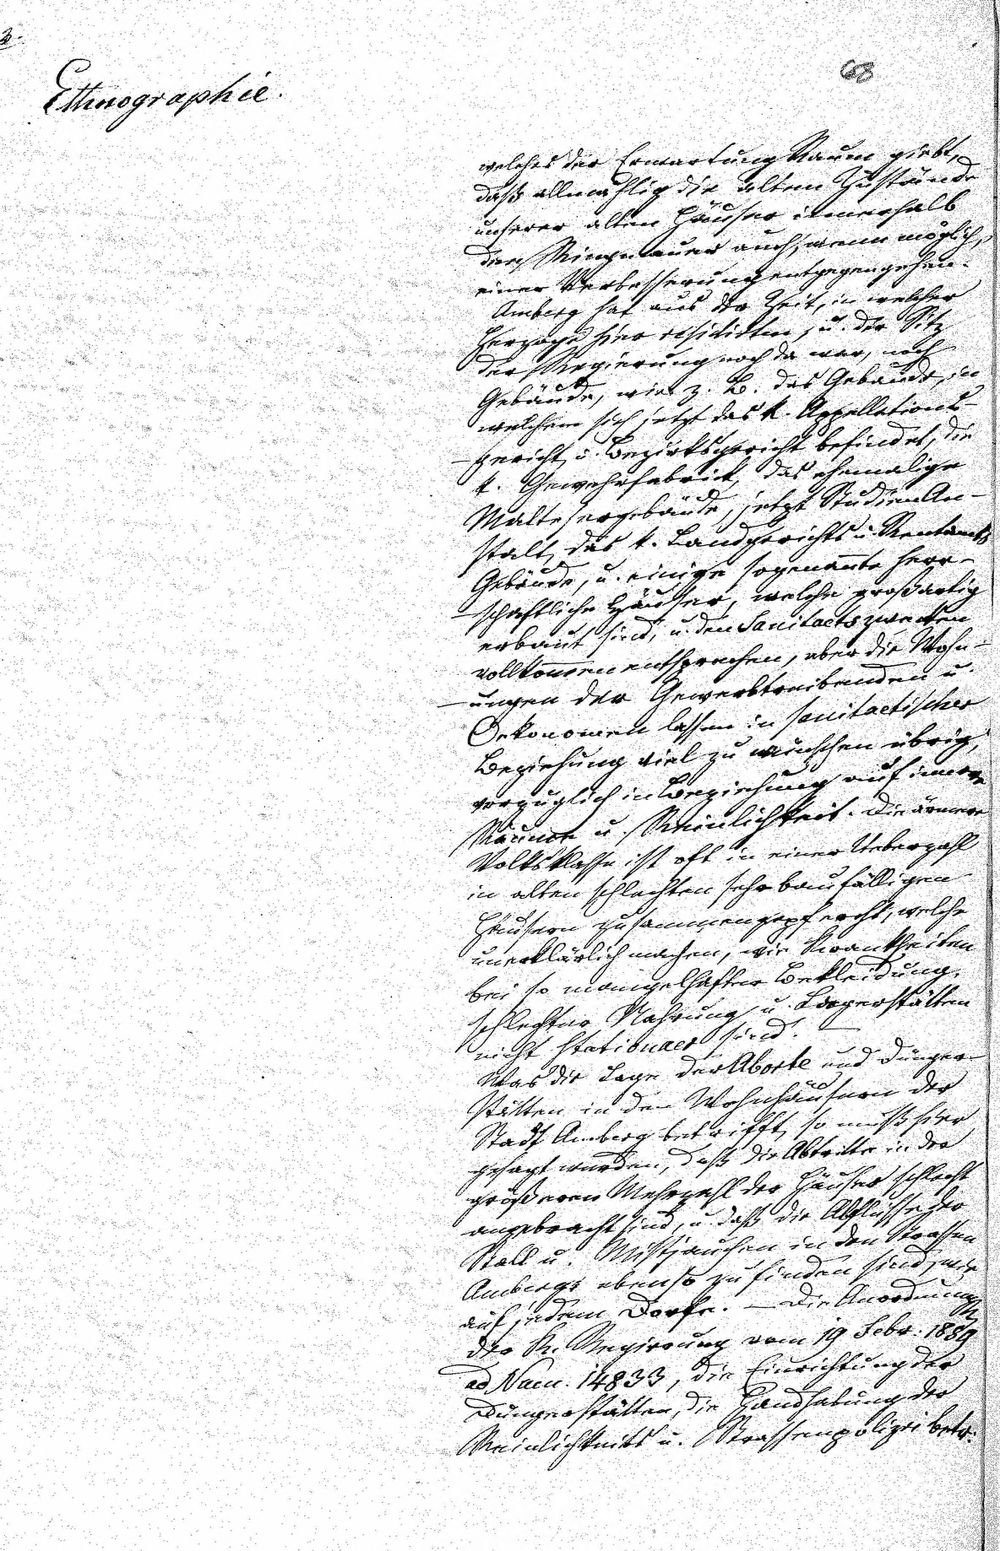 68
Ethnographie.
welches der Erwartung Raum giebt,
daß allmählig die alten Zustände
unserer alten Häuser innerhalb
der Ringmauer auch, wenn möglich,
einer Verbesserung entgegengehen.
Amberg hat aus der Zeit, in welcher
Herzoge hier residirten, u. der Sitz
der Regierung noch da war, noch
Gebäude, wie z. B. das Gebäude, in
welchem sich jetzt das k. Appellations-
-gericht u. Bezirksgericht befindet, die
k. Gewehrfabrick, das ehemalige
Maltesergebäude, jetzt Studien An-
stalt, das k. Landgerichts u. Rentamts
Gebäude, u. einige sogenannte herr-
-schaftliche Häuser, welche großartig
erbaut sind, u. den Sanitaetszwecken
vollkommen entsprechen, aber die Wohn-
-ungen der Gewerbtreibenden u.
Oekonomen lassen in sanitaetischer
Beziehung viel zu wünschen übrig,
vorzüglich in Beziehung auf innere
Räume u. Reinlichkeit. Die ärmere
Volksklasse ist oft in einer Ueberzahl
in alten schlechten sehr baufälligen
Häusern zusammengepfercht, welche
unerklärlich machen, wie Krankheiten
bei so mangelhafter Bekleidung,
schlechter Nahrung u. Lagerstätten
nicht stationaer sind. —
Was die Lage der Aborte und Dünger-
stätten in den Wohnhäusern der
Stadt Amberg betrifft, so muß hier
gesagt werden, daß die Abtritte in der
größeren Mehrzahl der Häuser schlecht
angebracht sind, u. daß die Abflüsse der
Stall u. Mistjauchen in den Strassen
Ambergs ebenso zu finden sind, wie
auf jedem Dorfe. — Die Anordnung
der K. Regierung vom 19 Febr. 1859
ad Num. 14833, die Einrichtung der
Düngerstätten, die Handhabung der
Reinlichkeits u. Strassenpolizei betr.